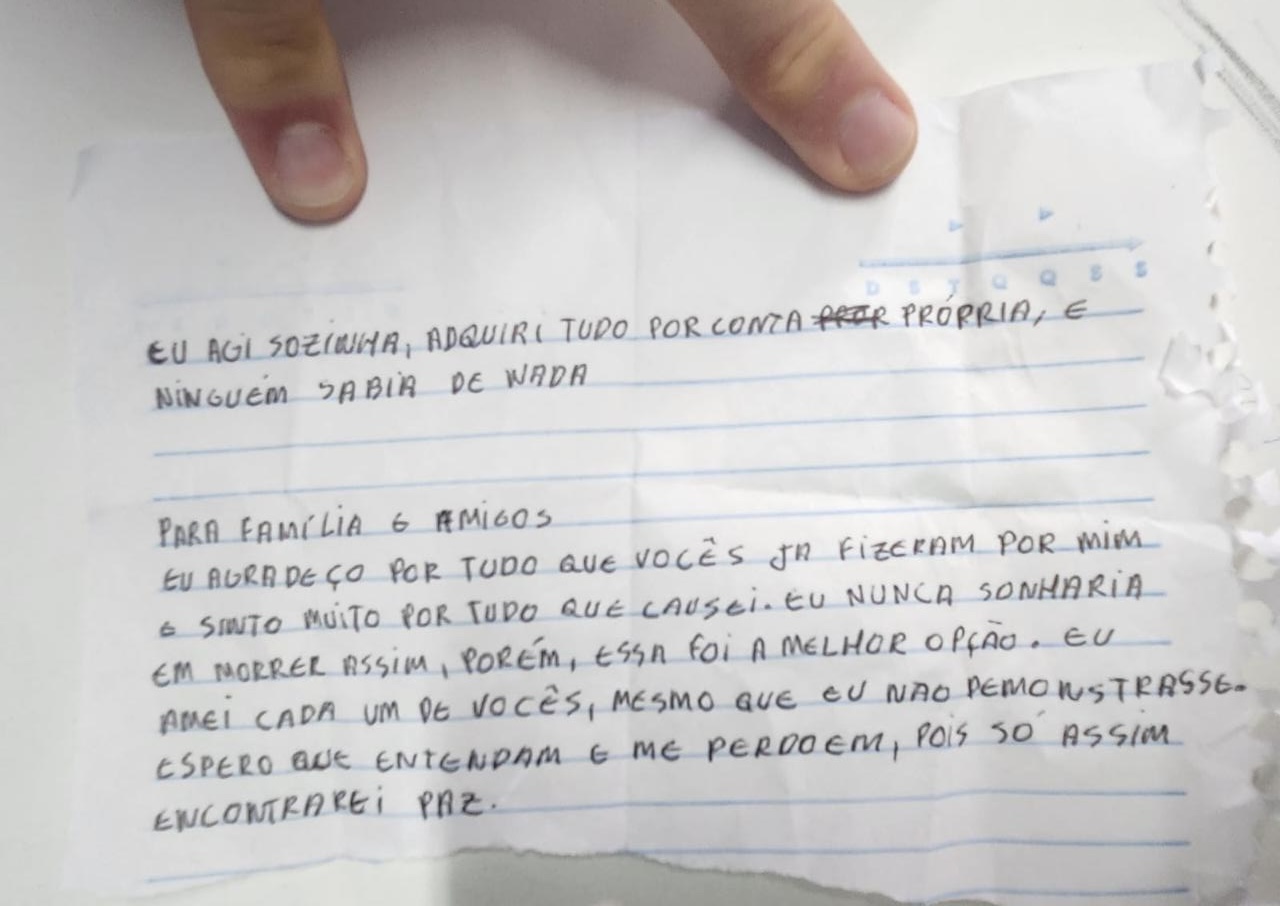 D S T Q Q S S
EU AGI SOZINHA, ADQUIRI TUDO POR CONTA PRÓPRIA, E
NINGUÉM SABIA DE NADA
PARA FAMÍLIA E AMIGOS
EU AGRADEÇO POR TUDO QUE VOCÊS JA FIZERAM POR MIM
E SINTO MUITO POR TUDO QUE CAUSEI. EU NUNCA SONHARIA
EM MORRER ASSIM, PORÉM, ESSA FOI A MELHOR OPÇÃO. EU
AMEI CADA UM DE VOCÊS, MESMO QUE EU NÃO DEMONSTRASSE.
ESPERO QUE ENTENDAM E ME PERDOEM, POIS SÓ ASSIM
ENCONTRAREI PAZ.